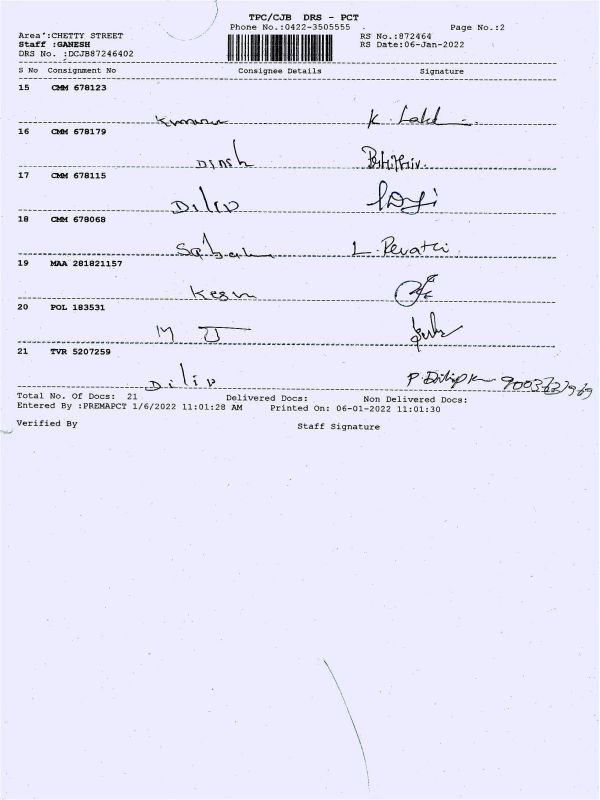 TPC/CJB DRS - PCT
Phone No.:0422-3505555 Page No.:2
Area :CHETTY STREET RS No.:872464
Staff :GANESH RS Date:06-Jan-2022
DRS No. :DCJB87246402
S No Consignment No Consignee Details Signature
15 CMM 678123
K. Lakd
16 CMM 678179
Dinsh
17 CMM 678115
Dilip
18 CMM 678068
L. Revathi
19 MAA 281821157
Kesu
20 POL 183531
M J
21 TVR 5207259
Dilip P. Dilip K
Total No. Of Docs: 21 Delivered Docs: Non Delivered Docs:
Entered By :PREMAPCT 1/6/2022 11:01:28 AM Printed On: 06-01-2022 11:01:30
Verified By Staff Signature